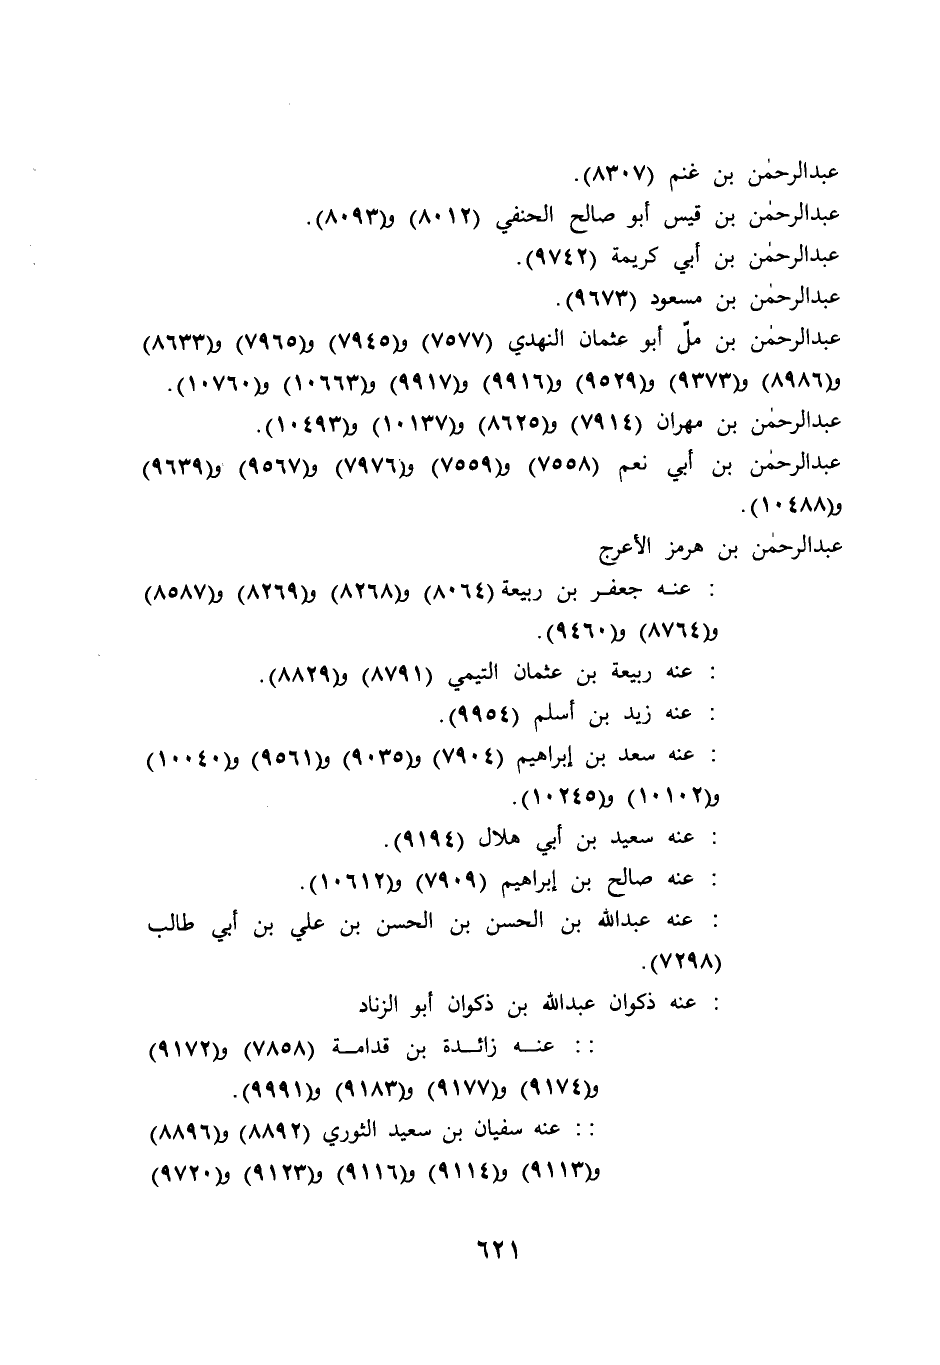 عبدالرحمٰن بن غنم (٨٣٠٧).
عبدالرحمٰن بن قيس أبو صالح الحنفي (٨٠١٢) و(٨٠٩٣).
عبدالرحمٰن بن أبي كريمة (٩٧٤٢).
عبدالرحمٰن بن مسعود (٩٦٧٣).
عبدالرحمٰن بن ملّ أبو عثمان النهدي (٧٥٧٧) و(٧٩٤٥) و(٧٩٦٥) و(٨٦٣٣)
و(٨٩٨٦) و(٩٣٧٣) و(٩٥٢٩) و(٩٩١٦) و(٩٩١٧) و(١٠٦٦٣) و(١٠٧٦٠).
عبدالرحمٰن بن مهران (٧٩١٤) و(٨٦٢٥) و(١٠١٣٧) و(١٠٤٩٣).
عبدالرحمٰن بن أبي نعم (٧٥٥٨) و(٧٥٥٩) و(٧٩٧٦) و(٩٥٦٧) و(٩٦٣٩)
و(١٠٤٨٨).
عبدالرحمٰن بن هرمز الأعرج
: عنه جعفر بن ربيعة (٨٠٦٤) و(٨٢٦٨) و(٨٢٦٩) و(٨٥٨٧)
و(٨٧٦٤) و(٩٤٦٠).
: عنه ربيعة بن عثمان التيمي (٨٧٩١) و(٨٨٢٩).
: عنه زيد بن أسلم (٩٩٥٤).
: عنه سعد بن إبراهيم (٧٩٠٤) و(٩٠٣٥) و(٩٥٦١) و(١٠٠٤٠)
و(١٠١٠٢) و(١٠٢٤٥).
: عنه سعيد بن أبي هلال (٩١٩٤).
: عنه صالح بن إبراهيم (٧٩٠٩) و(١٠٦١٢).
: عنه عبدالله بن الحسن بن الحسن بن علي بن أبي طالب
(٧٢٩٨).
: عنه ذكوان عبدالله بن ذكوان أبو الزناد
:: عنه زائدة بن قدامة (٧٨٥٨) و(٩١٧٢)
و(٩١٧٤) و(٩١٧٧) و(٩١٨٣) و(٩٩٩١).
:: عنه سفيان بن سعيد الثوري (٨٨٩٢) و(٨٨٩٦)
و(٩١١٣) و(٩١١٤) و(٩١١٦) و(٩١٢٣) و(٩٧٢٠)
٦٢١